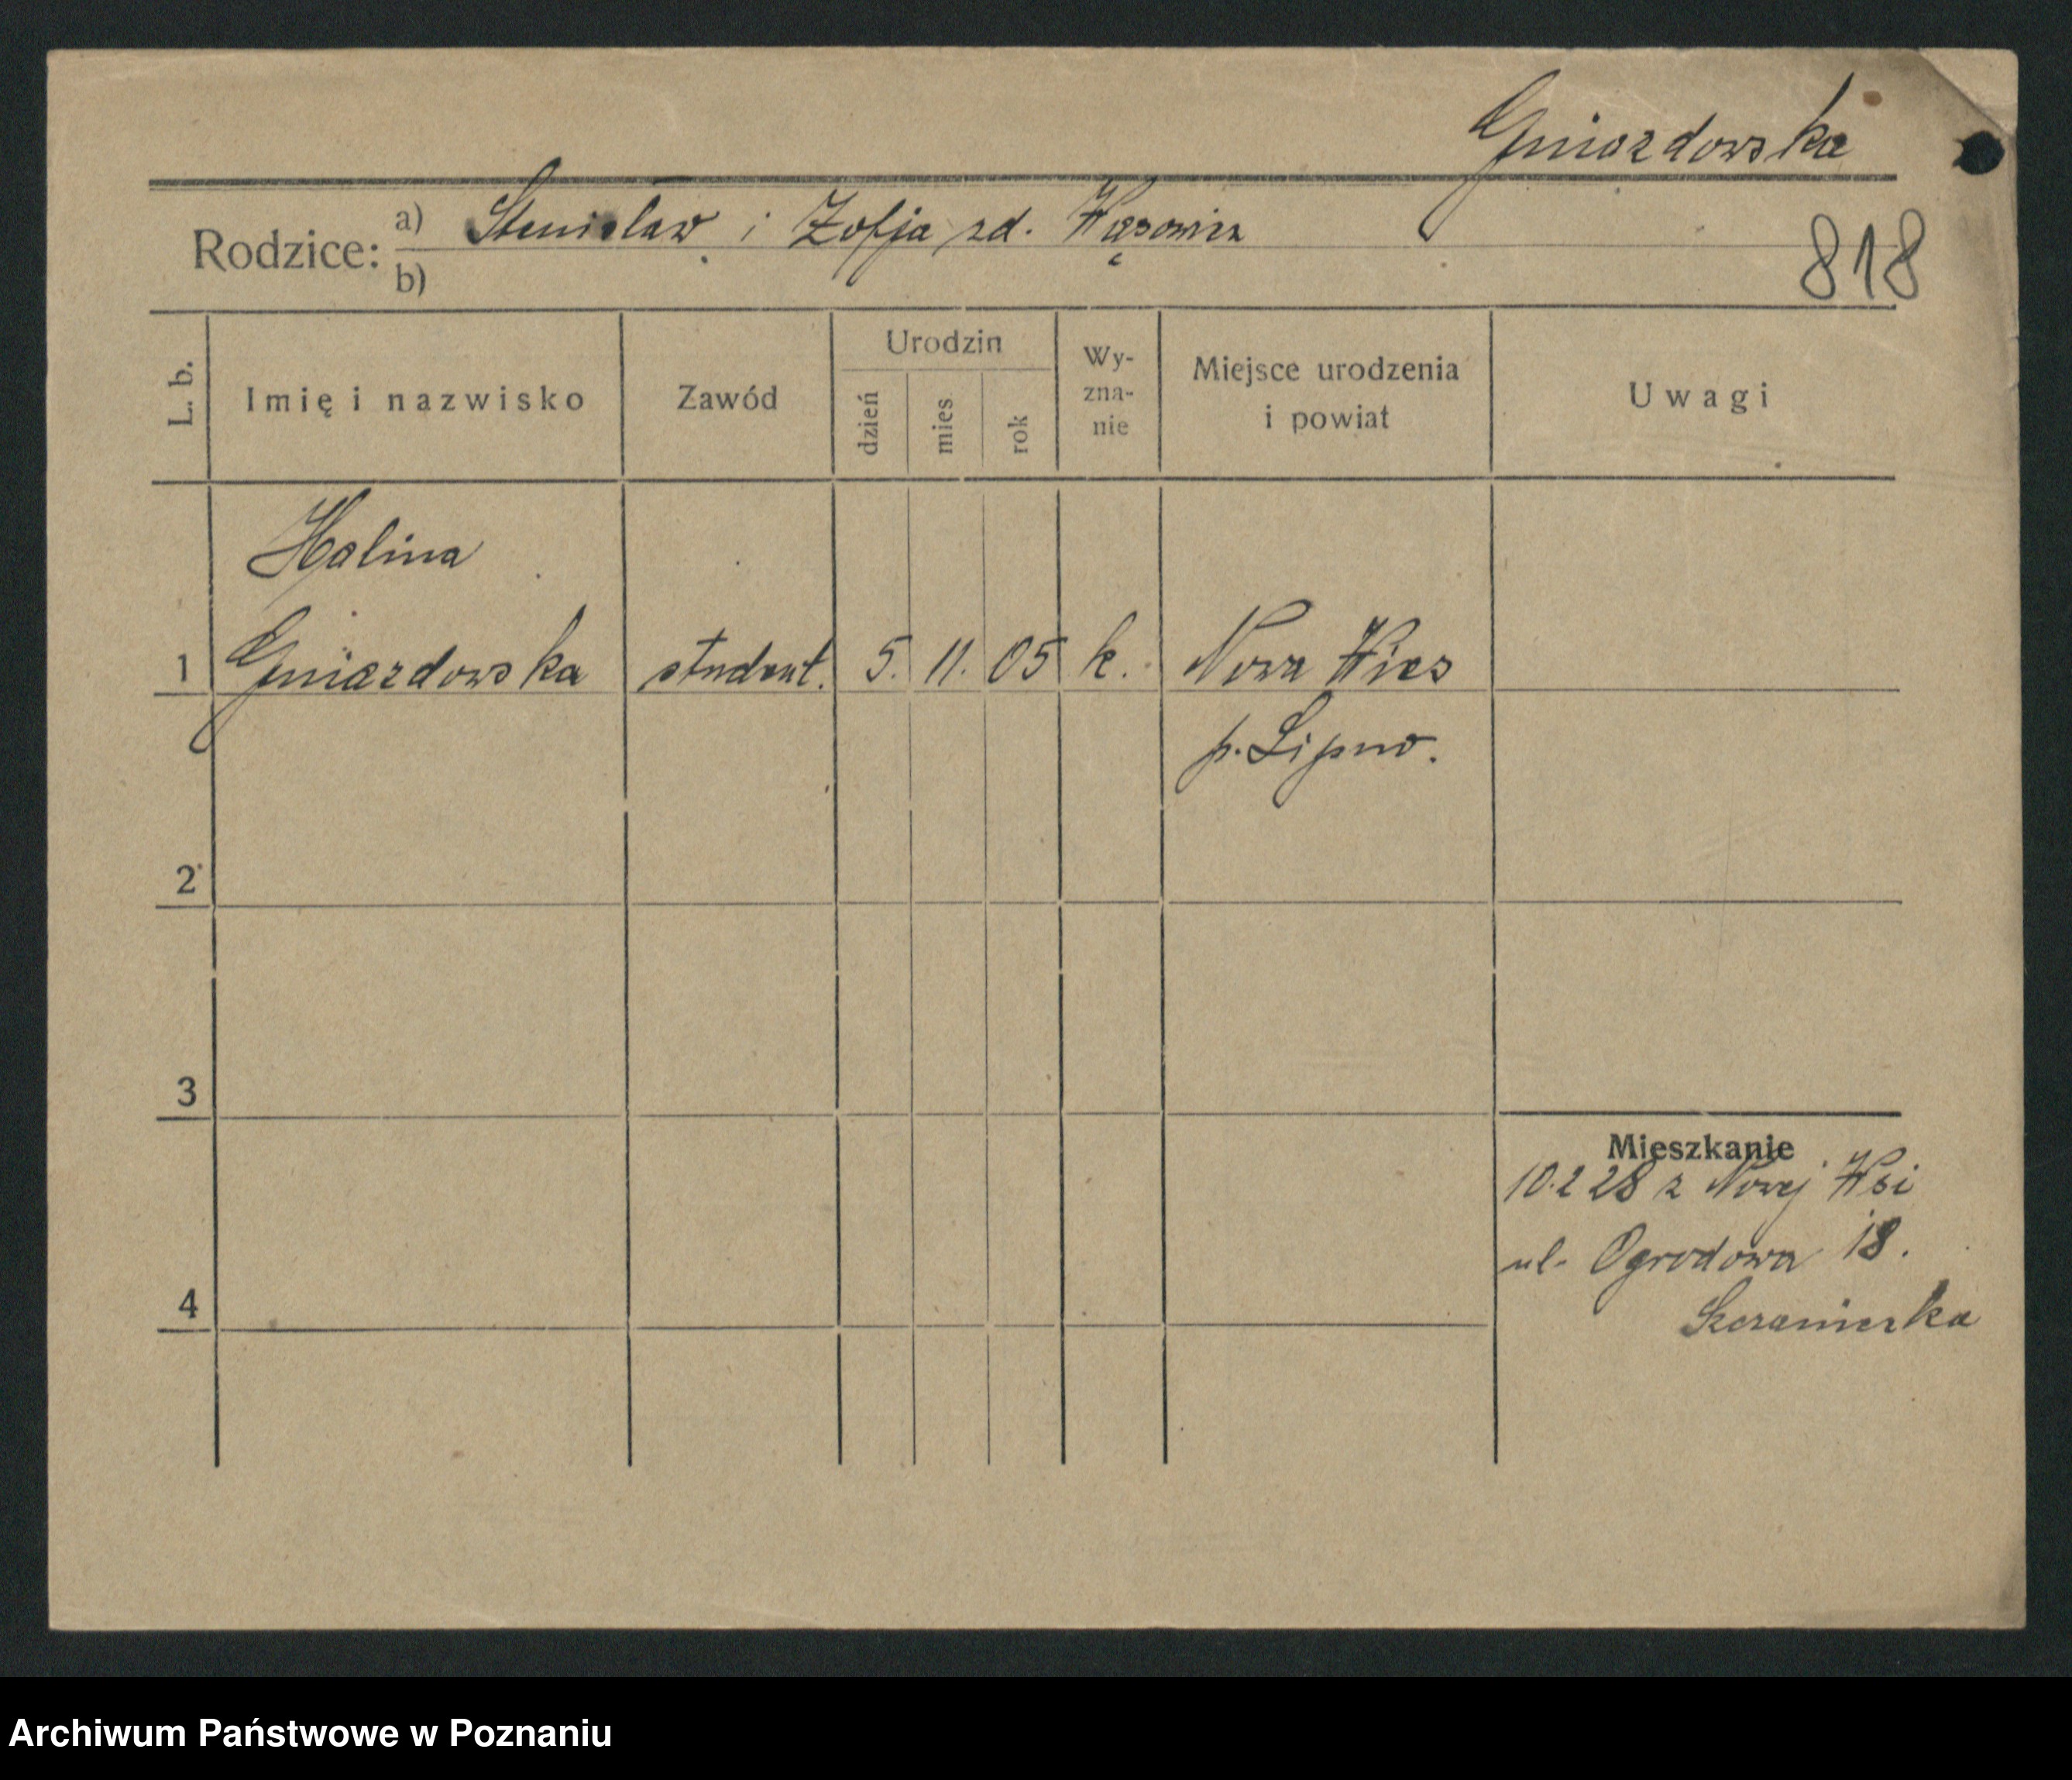 Gniazdowska
Rodzice: a) Stanisław i Zofja zd. Wąsowicz
b)
818
L. b. Imię i nazwisko Zawód Urodzin dzień mies rok Wy-zna-nie Miejsce urodzenia i powiat Uwagi
Halina
1 Gniazdowska student. 5. 11. 05 k. Nowa Wies
p. Lipno.
2
3
Mieszkanie
10.2 28 z Nowej Wsi
ul. Ogrodowa 18.
4
Archiwum Państwowe w Poznaniu